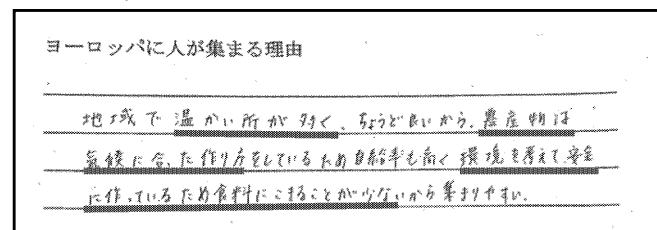 ヨーロッパに人が集まる理由
地域で温かい所が多く、ちょうど良いから。農産物は
気候に合った作り方をしているため自給率も高く環境を考えて安全
に作っているため食料にこまることが少ないから集まりやすい。